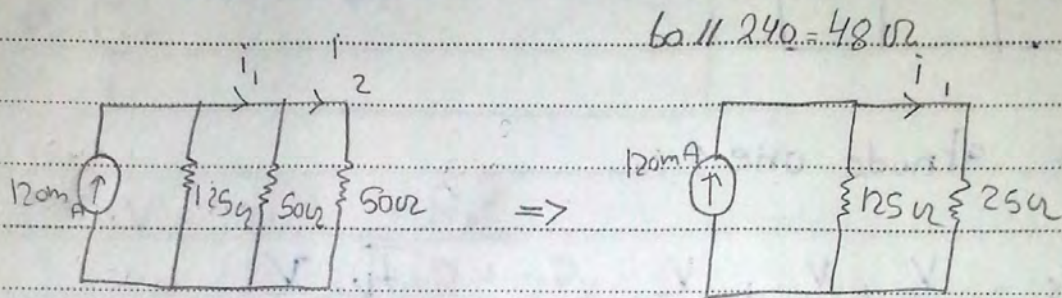 60 // 240 = 48 Ω
i₁ i 2
i 1
120m A ↑ 125Ω 50Ω 50Ω => 120mA ↑ 125Ω 25Ω